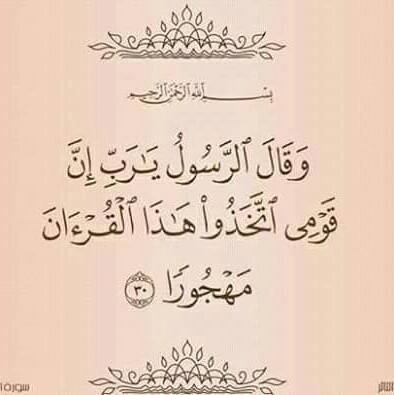 بِسْمِ ٱللَّهِ ٱلرَّحْمَٰنِ ٱلرَّحِيمِ
وَقَالَ ٱلرَّسُولُ يَٰرَبِّ إِنَّ
قَوْمِى ٱتَّخَذُوا۟ هَٰذَا ٱلْقُرْءَانَ
مَهْجُورًا ٣٠
سورة